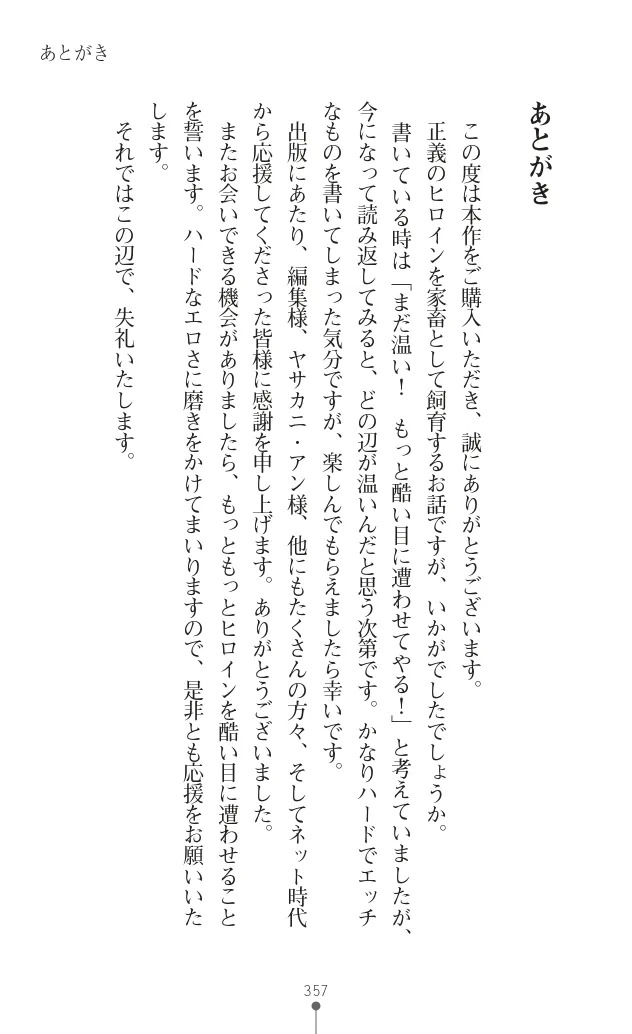 あとがき
あとがき
　この度は本作をご購入いただき、誠にありがとうございます。
　正義のヒロインを家畜として飼育するお話ですが、いかがでしたでしょうか。
　書いている時は「まだ温い！　もっと酷い目に遭わせてやる！」と考えていましたが、
今になって読み返してみると、どの辺が温いんだと思う次第です。かなりハードでエッチ
なものを書いてしまった気分ですが、楽しんでもらえましたら幸いです。
　出版にあたり、編集様、ヤサカニ・アン様、他にもたくさんの方々、そしてネット時代
から応援してくださった皆様に感謝を申し上げます。ありがとうございました。
　またお会いできる機会がありましたら、もっともっとヒロインを酷い目に遭わせること
を誓います。ハードなエロさに磨きをかけてまいりますので、是非とも応援をお願いいた
します。
　それではこの辺で、失礼いたします。
357